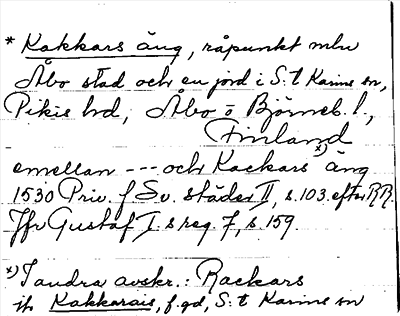 * Kakkars äng, råpunkt mln
Åbo stad och en jord i S:t Karins sn,
Pikis hd, Åbo o Björneb. l.,
Finland
emellan --- och Kackars x) äng
1530 Priv. f Sv. städer II, s. 103. efter RR.
Jfr Gustaf I:s reg. 7, s. 159.
x) I andra avskr.: Rackars
jfr Kakkarais, f. gd, S:t Karins sn